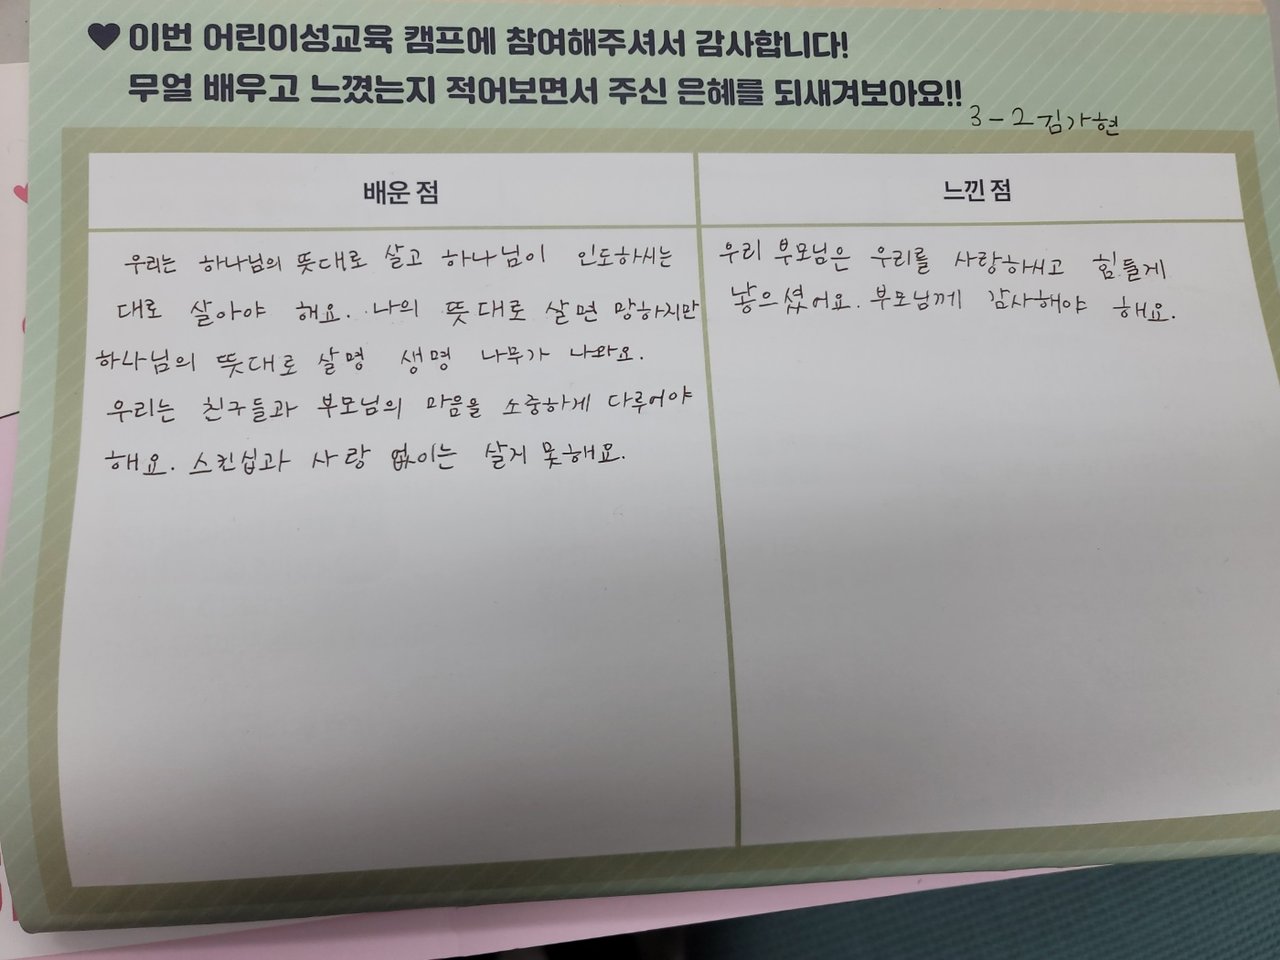 ♥ 이번 어린이성교육 캠프에 참여해주셔서 감사합니다!
무얼 배우고 느꼈는지 적어보면서 주신 은혜를 되새겨보아요!!
3-2 김가현
배운 점
우리는 하나님의 뜻대로 살고 하나님이 인도하시는
대로 살아야 해요. 나의 뜻대로 살면 망하지만
하나님의 뜻대로 살명 생명 나무가 나와요.
우리는 친구들과 부모님의 마음을 소중하게 다루어야
해요. 스킨십과 사랑 없이는 살지 못해요.
느낀 점
우리 부모님은 우리를 사랑하시고 힘들게
낳으셨어요. 부모님께 감사해야 해요.